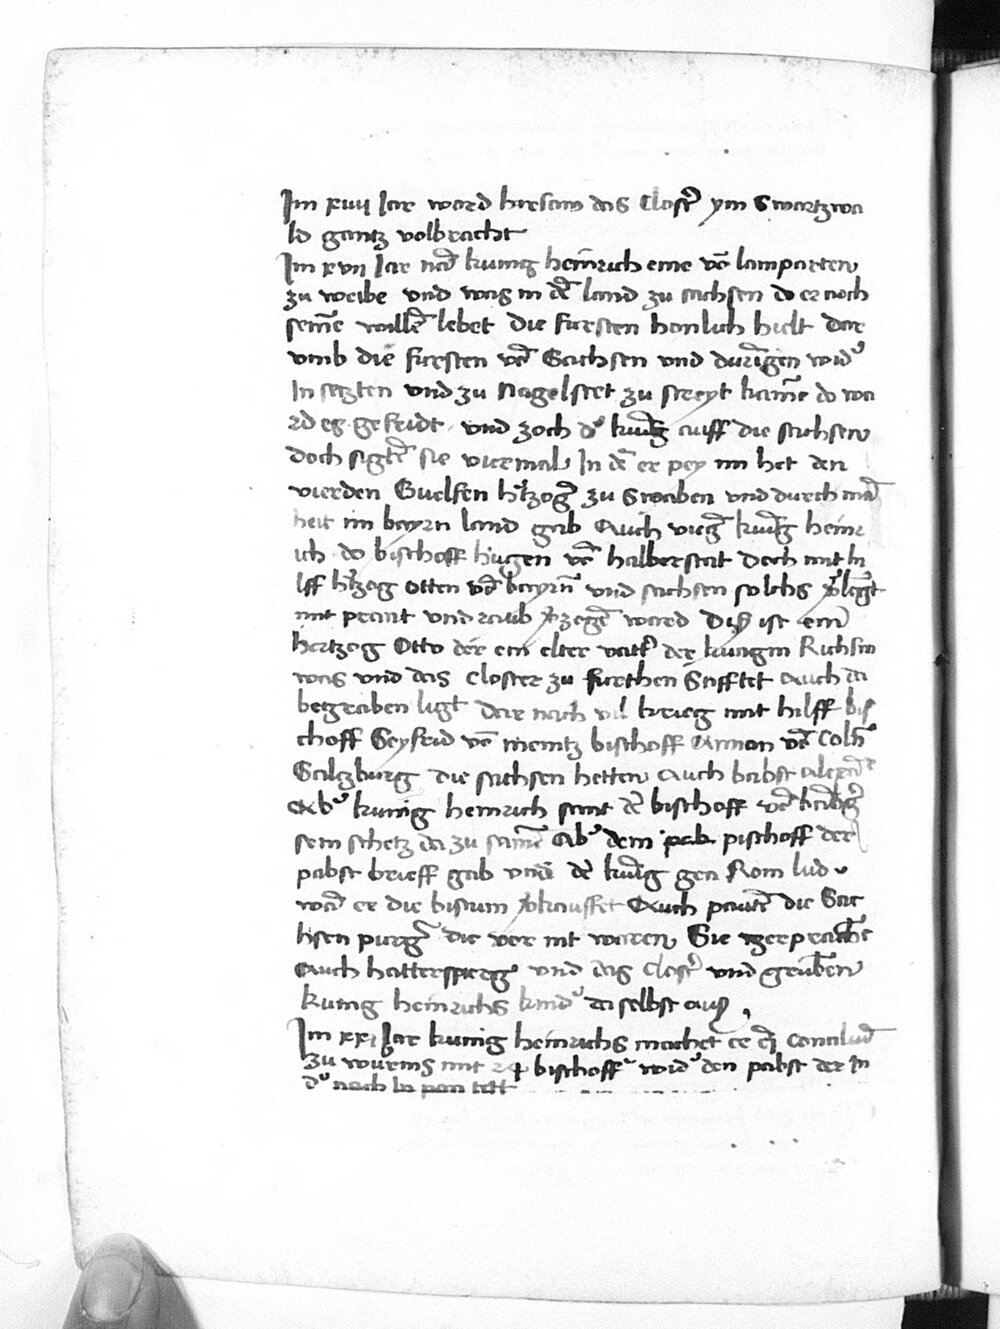 Im xvij Jar ward hirsaw das Closter ym Swartzwa
ld gantz volbracht
Im xvij Jar nam kunig heinrich eine von lamparten
zu weibe vnd was in dem land zu sachsen do er noch
seinem willen lebet die fursten honlich hielt dar
vmb die fursten von Sachsen vnd duringen wider
In setzten vnd zu Nagelstet zu streyt kamen do wa
rd es gefridt vnd zoch der kunig auff die sachsen
doch sigten sie viermal In dem er pey im het den
vierden Guelfen hertzogen zu Swaben vnd durch
heit im bayrn land gab Auch kunig heinr
ich do bischoff hugen von halberstat Doch mit hi
lff hertzog otten von bayrn vnd sachsen solchs
mit prant vnd raub ward Diß ist ein
hertzog Otto der ein elter vater der kungin Richsin
was vnd das closter zu furthen Stifftet Auch da
begraben ligt dar nach vil krieg mit hilff bis
choff Seyfrid von mentz bischoff Annon von Coln
Saltzburg die sachsen hetten Auch babst alexander
Aber kunig heinrich sant dem bischoff von
sein schetz da zu samen Aber dem pab pischoff der
pabst brieff gab vnd den kunig gen Rom lud
wan er die bistum verkauffet Auch pauten die Sac
hsen purgen die vor nit waren Sie zerprachen
Auch hattersperg vnd das closter vnd gruben
kunig heinrichs kinder da selbst auß
Im xxj Jar kunig heinrichs machet er ein Conciliud
zu wurms mit 24 bischoff wider den pabst der In
der noch in pan tett